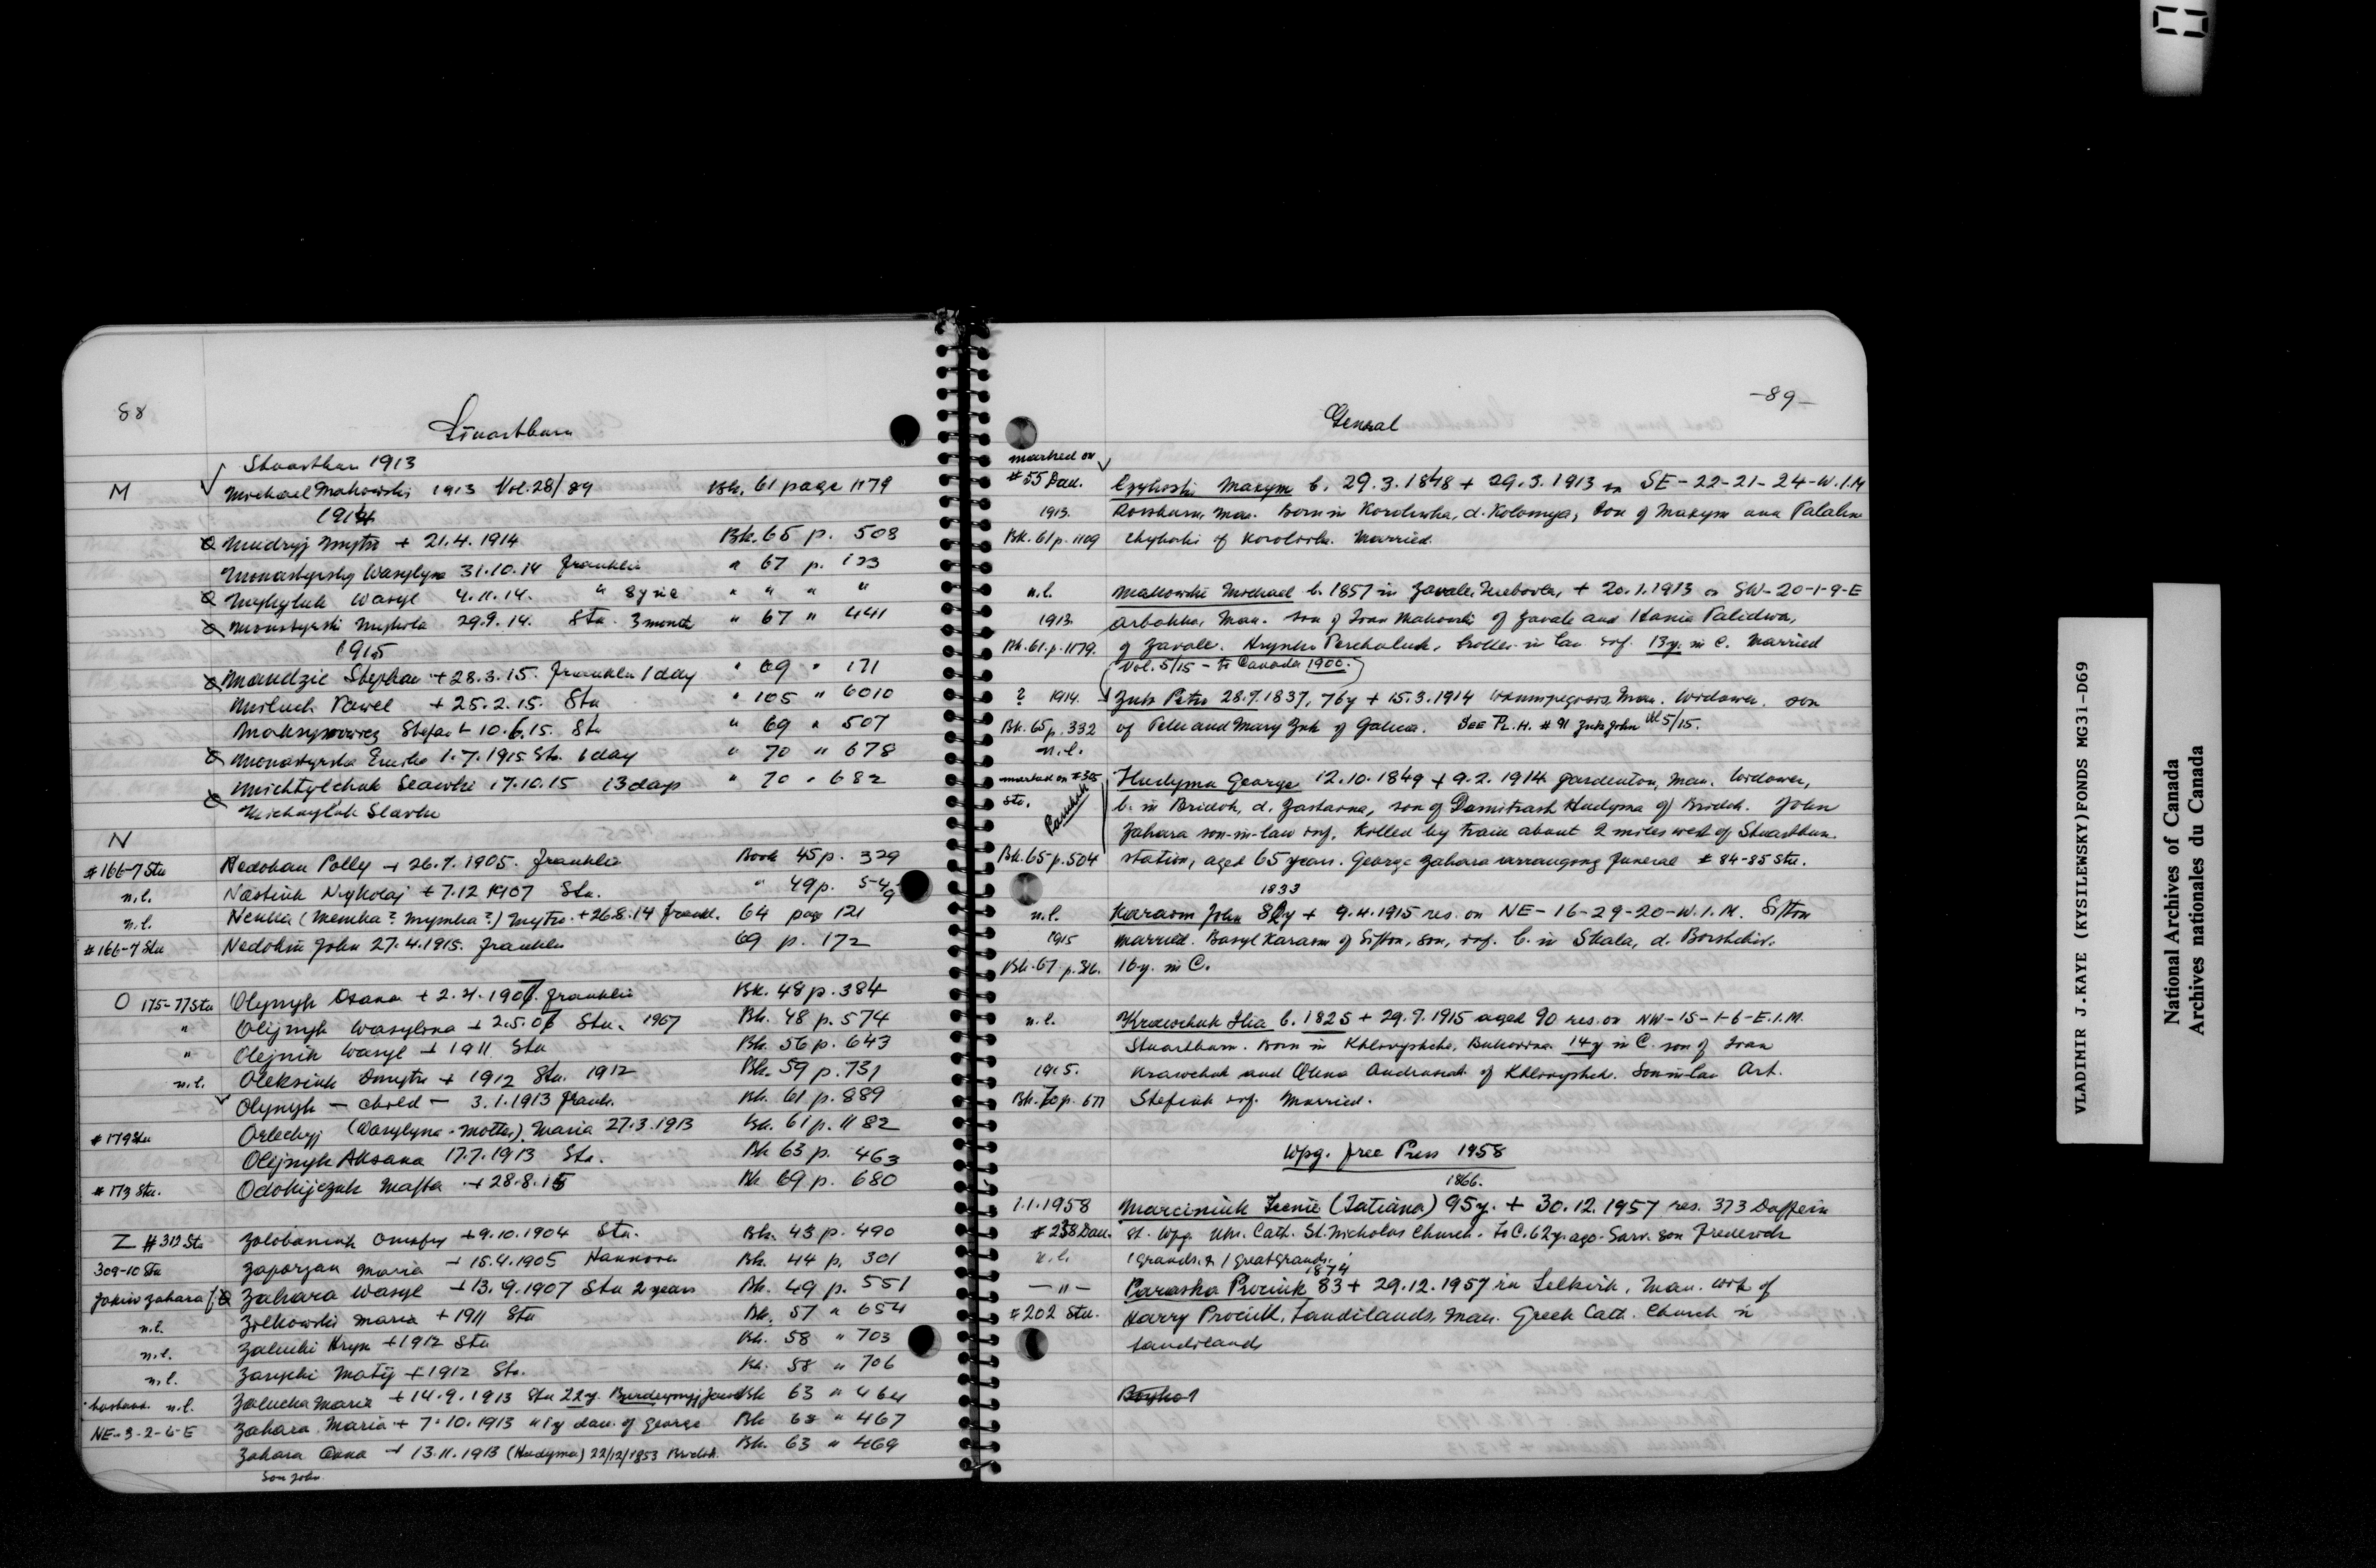 88
Stuartburn
Stuartburn 1913
M Michael Makowski 1913 Vol. 28/89 Bk. 61 page 1179
1914
Mudryj Dmytro + 21.4.1914 Bk. 65 p. 508
Monastyrsky Wasylyna 31.10.14 Franklin " 67 p. 123
Mykytuk Wasyl 4.11.14. " " " " "
Monstyrski Mykola 29.9.14. Stu. 3 month " 67 " 441
1915
Mandzie Stephan + 28.3.15. Franklin 1 day " 69 " 171
Pawel + 25.2.15. Stu " 105 " 6010
Stefan + 10.6.15. Stu " 69 " 507
Monastyrska Emilia 1.7.1915 Stu. 1 day " 70 " 678
17.10.15 13 days " 70 " 682
Michayluk Slavko
N
#166-7 Stu Nedohan Polly + 26.7.1905. Franklin Book 45 p. 329
n.l. Nastiuk Nykolaj + 7.12 1907 Stu. " 49 p. 549
n.l. Nemka (Memka? Mymka?) Dmytro. + 26.8.14 Frankl. 64 page 121
#166-7 Stu Nedohin John 27.4.1915. Franklin 69 p. 172
O 175-77 Stu Olynyk Oxana + 2.4.1907. Franklin Bk. 48 p. 384
" Olijnyk Wasylyna + 2.5.07 Stu. 1907 Bk. 48 p. 574
" Olejnik Wasyl + 1911 Stu Bk. 56 p. 643
n.l. Oleksiuk Dmytro + 1912 Stu. 1912 Bk. 59 p. 731
Olynyk - child - 3.1.1913 Frank. Bk. 61 p. 889
#179 Stu Orleckyj (Wasylyna - Mother). Maria 27.3.1913 Bk. 61 p. 1182
Olijnyk Aksana 17.7.1913 Stu. Bk 63 p. 463
#173 Stu. Odokijczuk Mafta + 28.8.15 Bk 69 p. 680
Z #312 Stu Zolobaniuk Onufry + 9.10.1904 Stu. Bk. 43 p. 490
309-10 Stu Zaporzan Maria + 15.4.1905 Hannover Bk. 44 p. 301
Zahara Wasyl + 13.9.1907 Stu 2 years Bk. 49 p. 551
n.l. Zolkowski Maria + 1911 Stu Bk. 57 " 654
n.l. Zalucki Hryn + 1912 Stu Bk. 58 " 703
n.l. Zarycki Matij + 1912 Stu. Bk. 58 " 706
husband n.l. Zalucka Maria + 14.9.1913 Stu 22y. Bk 63 " 464
NE-3-2-6-E Zahara Maria + 7.10.1913 " 1y dau. of George Bk 63 " 467
Zahara Anna + 13.11.1913 (Hudyma) 22/12/1853 Bridok. Bk. 63 " 469
Son John.
-89-
General
marked on
#55 Dau. Czyhoski Maxym b. 29.3.1848 + 29.3.1913 on SE-22-21-24-W.I.M
1913. Rossburn, Man. Born in Korolivka, d. Kolomya, son of Maxym and Palahna
Bk. 61 p. 1109 of Korolivka. Married.
n.l. Makowski Michael b. 1857 in Zavale, Trebovla, + 20.1.1913 on SW-20-1-9-E
1913 Arbakka, Man. son of Ivan Makowski of Zavale and Hania Palidwa,
Bk. 61. p. 1179. of Zavale. Hrynko Perchaluk, brother in law inf. 13y. in C. Married
(Vol. 5/15 - to Canada 1900.)
? 1914. Zuk Petro 28.7.1837, 76y + 15.3.1914 Winnipegosis, Man. Widower. son
Bk. 65 p. 332 of Peter and Mary Zuk of Galicia. See Pl. H. #91 Zuk John Vol 5/15.
n.l.
marked on #305 Hudyma George 12.10.1849 + 9.2.1914 Gardenton, Man. Widower,
Stu. b. in Bridok, d. Zastavna, son of Damitrash Hudyma of Bridok. John
Zahara son-in-law inf. Killed by train about 2 miles west of Stuartburn.
Bk. 65 p. 504 station, aged 65 years. George Zahara arranging funeral #84-85 Stu.
1833
n.l. Karasm John 82y + 9.4.1915 res. on NE-16-29-20-W.I.M. Sifton
1915 Married. Basyl Karasm of Sifton, son, inf. b. in Skala, d. Borshchiv.
Bk. 67 p. 316. 16y. in C.
n.l. Krawchuk Ilia b. 1825 + 29.7.1915 aged 90 res. on NW-15-1-6-E.I.M.
Stuartburn. Born in Khlivyshche, Bukovina. 14y in C. son of Ivan
1915. Krawchuk and Olena Andrusiak of Khlivyshche. Son-in-law Art.
Bk. 70 p. 677 Stefiuk inf. Married.
Wpg. Free Press 1958
1866.
1.1.1958 Marciniuk Tenie (Tatiana) 95y. + 30.12.1957 res. 373 Dufferin
#238 Dau. St. Wpg. Ukr. Cath. St. Nicholas Church. To C. 62y. ago. Surv. son Frederick
n.l. 1 grands. & 1 great grands.
1874
-"- Paraska Prociuk 83 + 29.12.1957 in Selkirk, Man. wife of
#202 Stu. Harry Prociuk, Sandilands, Man. Greek Cath. Church in
Sandilands
Boyko 1
VLADIMIR J.KAYE (KYSILEWSKY)FONDS MG31-D69
National Archives of Canada
Archives nationales du Canada